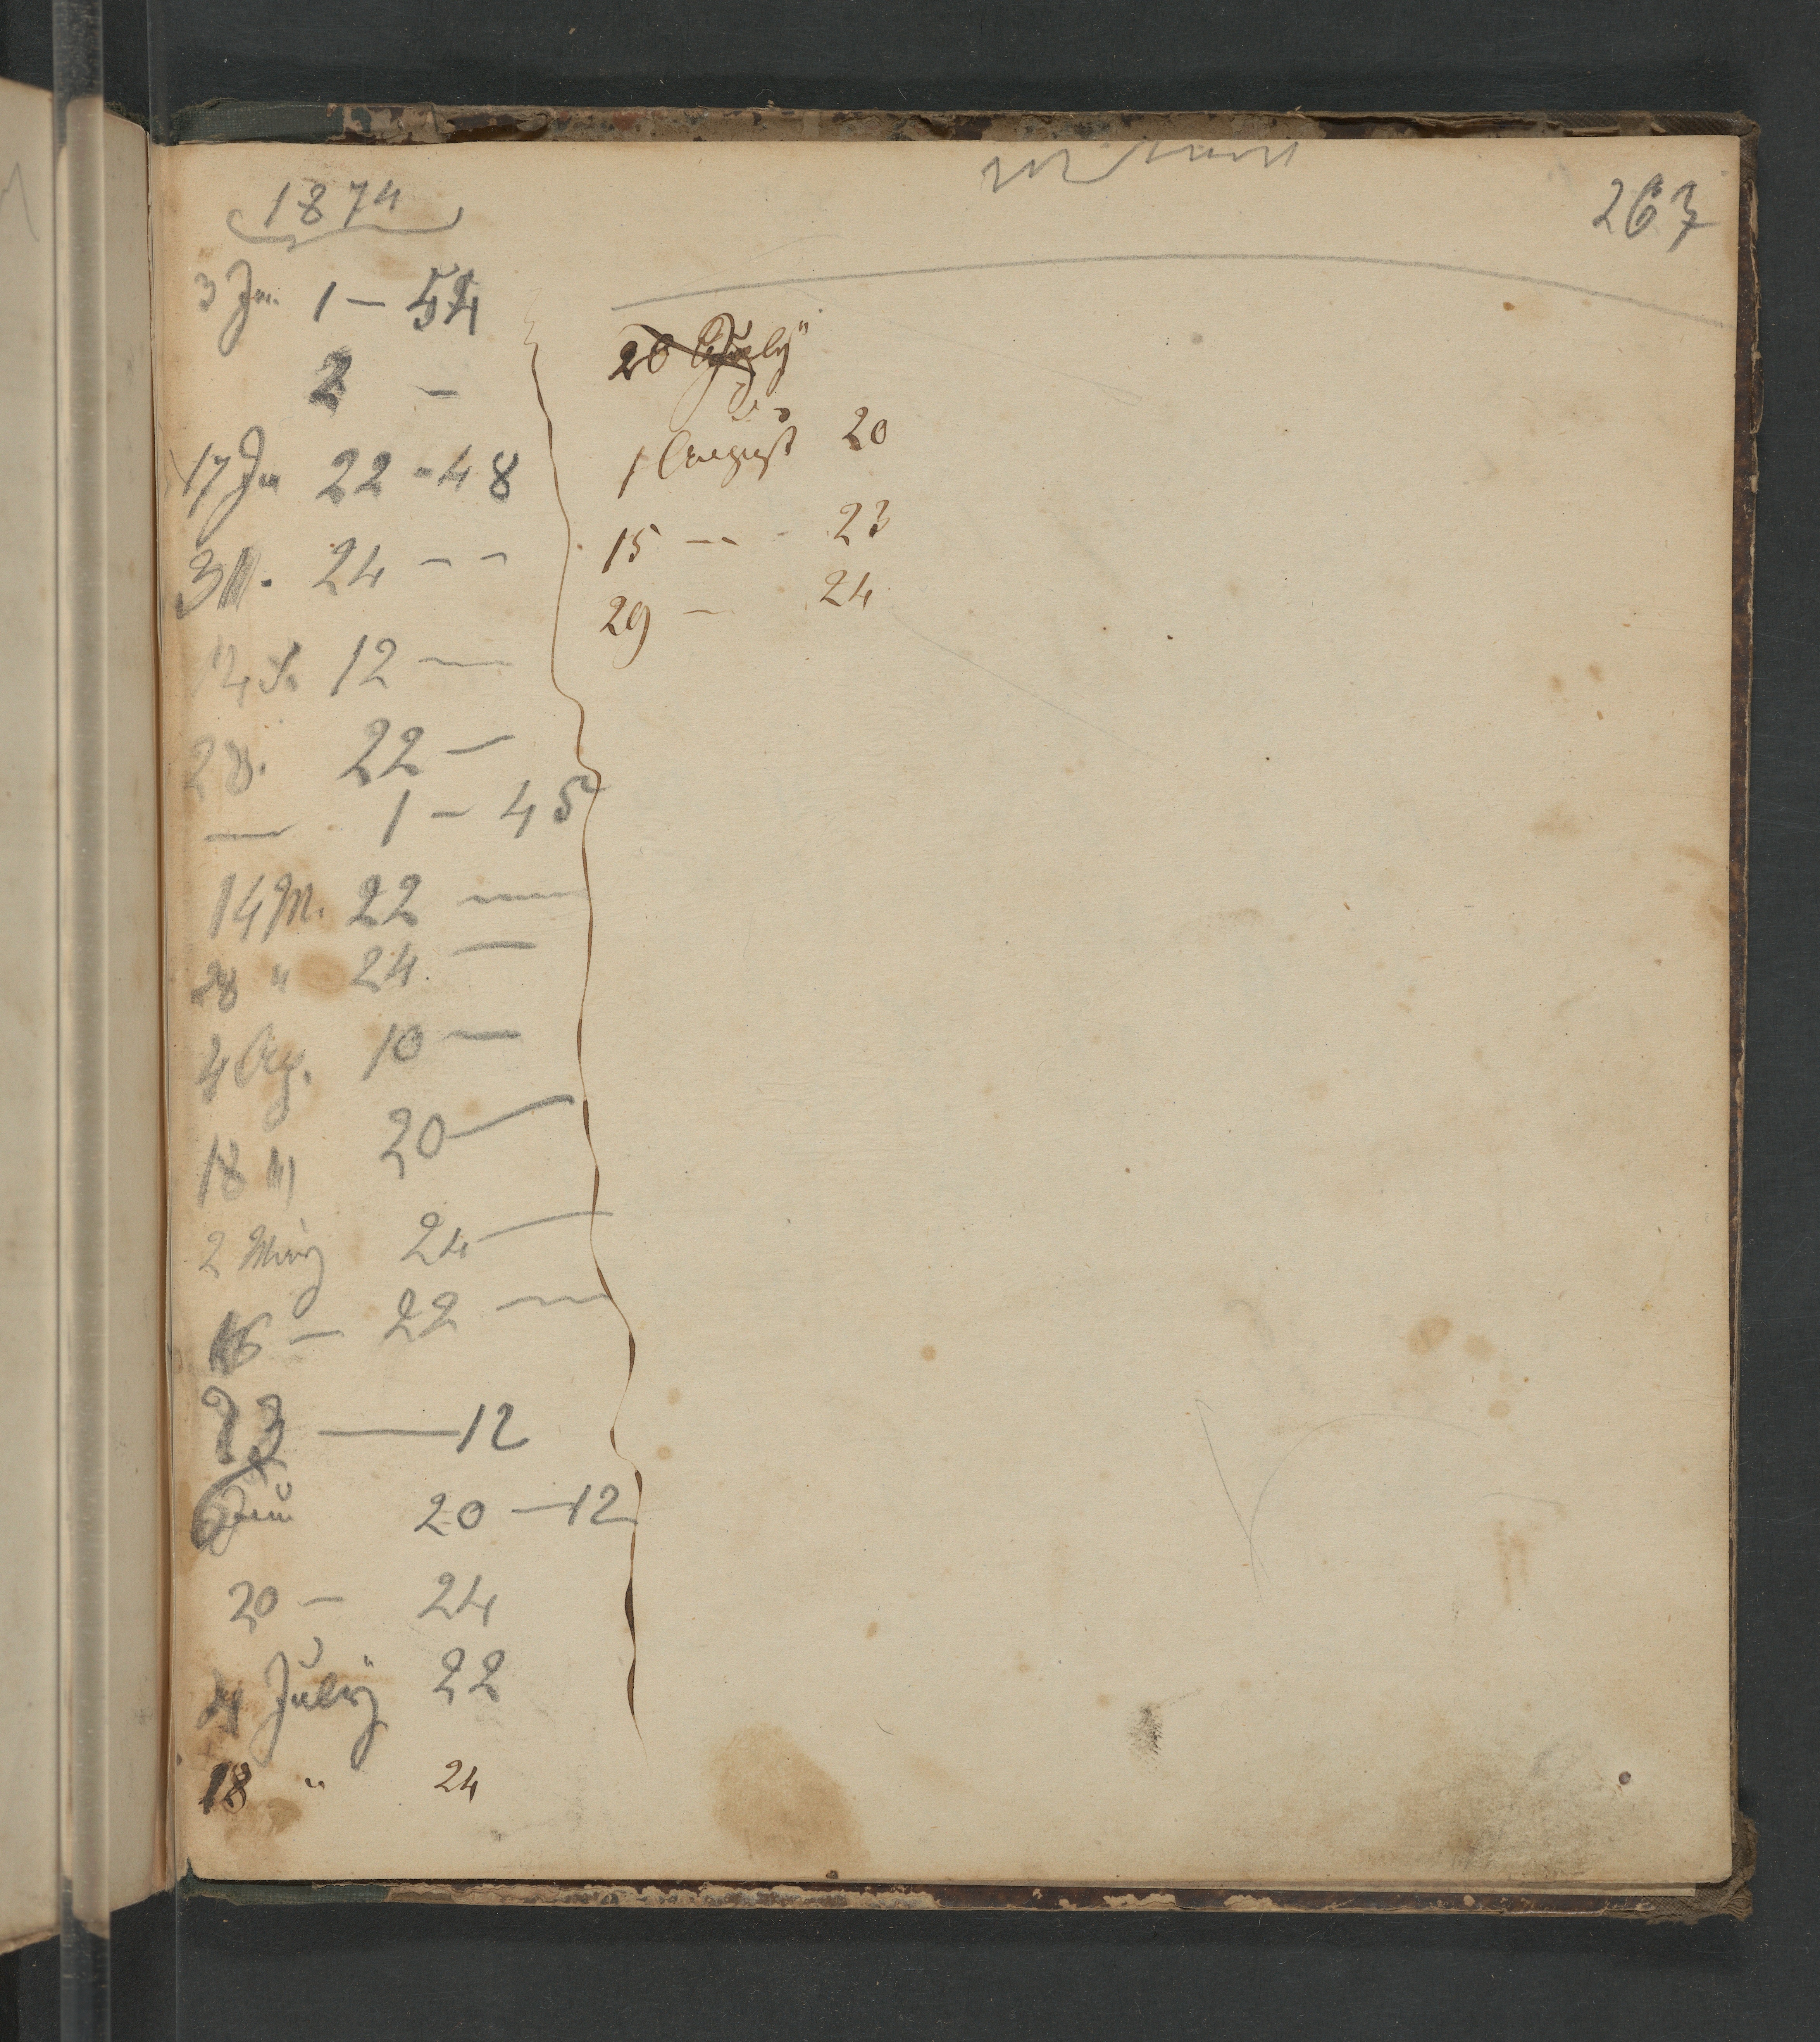 263
1874
3 Jan. 1 – 54
2 –
17 Jan 22 - 48
31 . 24 – –
12 —
28. 22 –
— 1 – 45
14 M. 22 —
28 " 24 —
4 Ap. 10 —
18 " 20 —
2 May 24 —
16 – 22 —
23 — 12
6 Juni 20 — 12
20 – 24
4 July 22
18 " 24
20 July
1 August 20
15 – – - 23
29 – 24